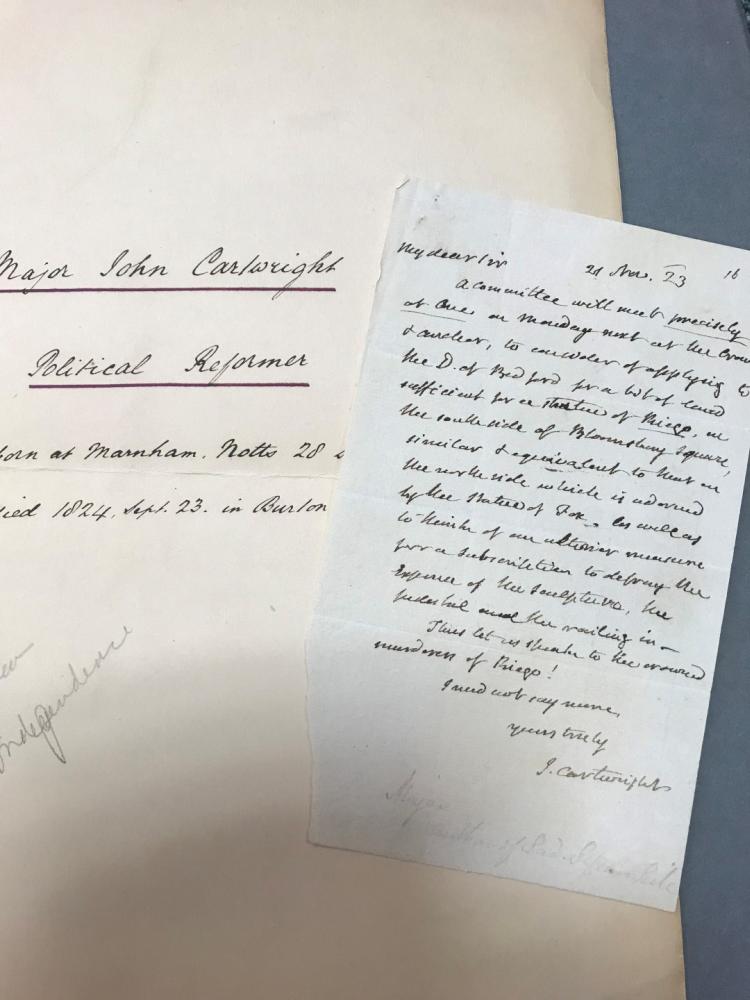 Major John Cartwright
Political Reformer
born at Marnham. Notts 28
died 1824. Sept. 23. in Burton
Independence
My dear Sir 21 Nov. 23
A committee will meet precisely
at One, on Monday next at the Crown
& Anchor, to consider of applying to
the D. of Bedford for a bit of land
sufficient for a statue of Riego, on
the south side of Bloomsbury Square,
similar & equivalent to that on
the north side which is adorned
by the statue of Fox. as well as
to think of an ulterior measure
for a subscription to defray the
Expence of the sculpture, the
pedestal and the railing in—
Thus let us speak to the crowned
murderers of Riego!
I need not say more,
yours truly
J. Cartwright
Major